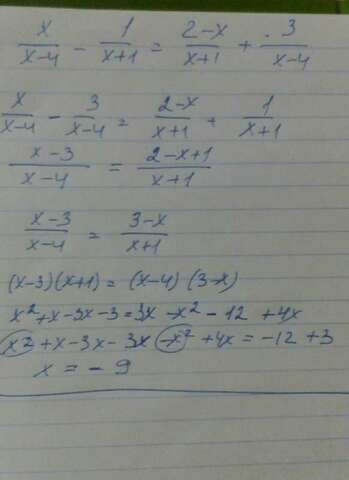 x/(x-4) - 1/(x+1) = (2-x)/(x+1) + 3/(x-4)
x/(x-4) - 3/(x-4) = (2-x)/(x+1) + 1/(x+1)
(x-3)/(x-4) = (2-x+1)/(x+1)
(x-3)/(x-4) = (3-x)/(x+1)
(x-3)(x+1) = (x-4)(3-x)
x²+x-3x-3=3x-x²-12+4x
x²+x-3x-3x-x²+4x=-12+3
x = -9